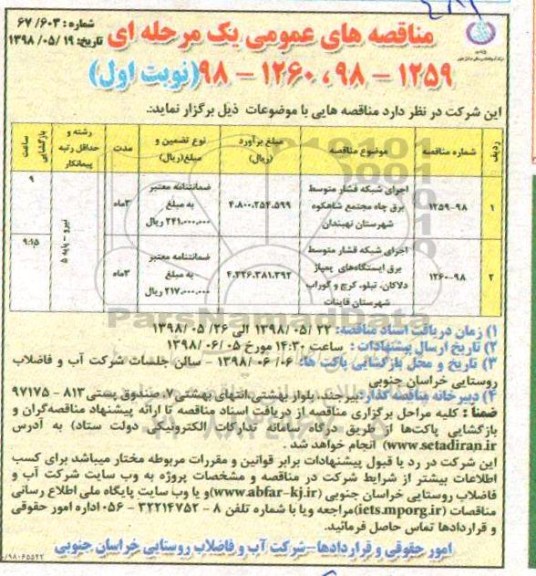 شماره: ۶۷/۶۰۳
تاریخ: ۱۳۹۸/۰۵/۱۹
مناقصه های عمومی یک مرحله ای
۱۲۵۹ – ۹۸، ۱۲۶۰ – ۹۸ (نوبت اول)
این شرکت در نظر دارد مناقصه هایی با موضوعات ذیل برگزار نماید:
ردیف شماره مناقصه موضوع مناقصه مبلغ برآورد (ریال) نوع تضمین و مبلغ(ریال) مدت رشته و حداقل رتبه پیمانکار بازگشایی ساعت
۱ ۱۲۵۹-۹۸ اجرای شبکه فشار متوسط برق چاه مجتمع شاهکوه شهرستان نهبندان ۴.۸۰۰.۲۵۴.۵۹۹ ضمانتنامه معتبر به مبلغ ۲۴۱.۰۰۰.۰۰۰ ریال ۳ماه نیرو - پایه ۵ ۹
۲ ۱۲۶۰-۹۸ اجرای شبکه فشار متوسط برق ایستگاه‌های پمپاژ دلاکان، تیلو، کرج و گوراب شهرستان قاینات ۴.۳۲۶.۳۸۱.۳۹۲ ضمانتنامه معتبر به مبلغ ۲۱۷.۰۰۰.۰۰۰ ریال ۳ماه ۹:۱۵
۱) زمان دریافت اسناد مناقصه: ۲۲ /۰۵ /۱۳۹۸ الی ۲۶ /۰۵ /۱۳۹۸
۲) تاریخ ارسال پیشنهادات : ساعت ۱۴:۳۰ مورخ ۰۵ /۰۶ /۱۳۹۸
۳) تاریخ و محل بازگشایی پاکت ها: ۰۶ /۰۶ /۱۳۹۸ - سالن جلسات شرکت آب و فاضلاب
روستایی خراسان جنوبی
۴) دبیرخانه مناقصه گذار: بیرجند، بلوار بهشتی، انتهای بهشتی ۷، صندوق پستی ۸۱۳ - ۹۷۱۷۵
ضمنا : کلیه مراحل برگزاری مناقصه از دریافت اسناد مناقصه تا ارائه پیشنهاد مناقصه‌گران و
بازگشایی پاکت‌ها از طریق درگاه سامانه تدارکات الکترونیکی دولت ستاد) به آدرس
www.setadiran.ir) انجام خواهد شد .
این شرکت در رد یا قبول پیشنهادات برابر قوانین و مقررات مربوطه مختار میباشد برای کسب
اطلاعات بیشتر از شرایط شرکت در مناقصه و مشخصات پروژه به وب سایت شرکت آب و
فاضلاب روستایی خراسان جنوبی (www.abfar-kj.ir)و یا وب سایت پایگاه ملی اطلاع رسانی
مناقصات (iets.mporg.ir)مراجعه ویا با شماره تلفن ۸ - ۳۲۲۱۴۷۵۲ - ۰۵۶ اداره امور حقوقی
و قراردادها تماس حاصل فرمائید.
امور حقوقی و قراردادها – شرکت آب و فاضلاب روستایی خراسان جنوبی
ParsNamadData